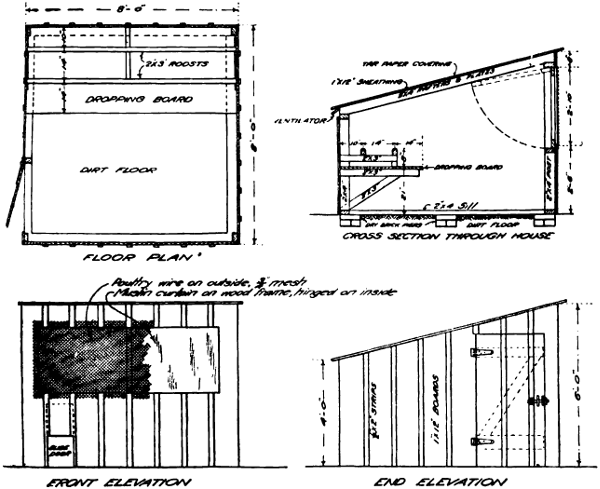 8'-0"
2"X3" ROOSTS
DROPPING BOARD
DIRT FLOOR
8'-0"
FLOOR PLAN
TAR PAPER COVERING
1"X12" SHEATHING
2"X4" RAFTERS & PLATES
VENTILATOR
10 14" 14"
2"X3"
2"X3"
DROPPING BOARD
2"X4"
2"X3"
21"
2"X4" POST
2'-10"
2'-6"
6"
2"X4" Sill
DRY BRICK PIERS
DIRT FLOOR
CROSS SECTION THROUGH HOUSE
Poultry wire on outside, ¾" mesh
Muslin curtain on wood frame, hinged on inside
SLIDE DOOR
FRONT ELEVATION
4'-0"
STRIPS
1"X12" BOARDS
6'-0"
END ELEVATION